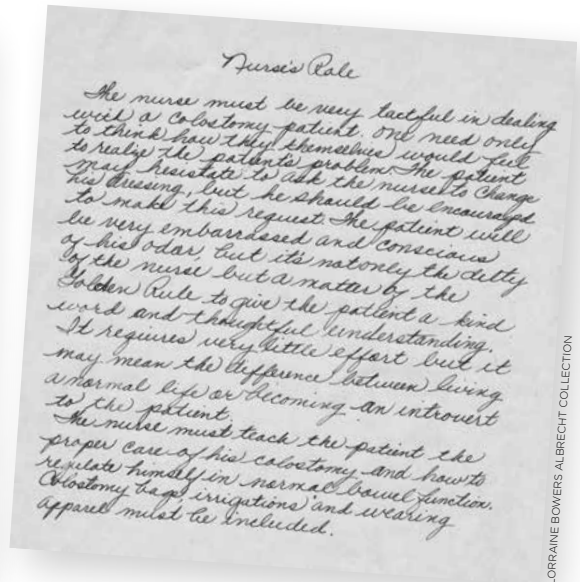 Nurse's Role
The nurse must be very tactful in dealing
with a colostomy patient. One need only
to think how they themselves would feel
to realize the patient's problem. The patient
may hesistate to ask the nurse to change
his dressing, but he should be encouraged
to make this request. The patient will
be very embarrassed and conscious
of his odor, but it's not only the duty
of the nurse but a matter of the
Golden Rule to give the patient a kind
word and thoughtful understanding.
It requires very little effort but it
may mean the difference between living
a normal life or becoming an introvert
to the patient.
The nurse must teach the patient the
proper care of his colostomy and how to
regulate himself in normal bowel function.
Colostomy bags, irrigations and wearing
apparel must be included.
LORRAINE BOWERS ALBRECHT COLLECTION